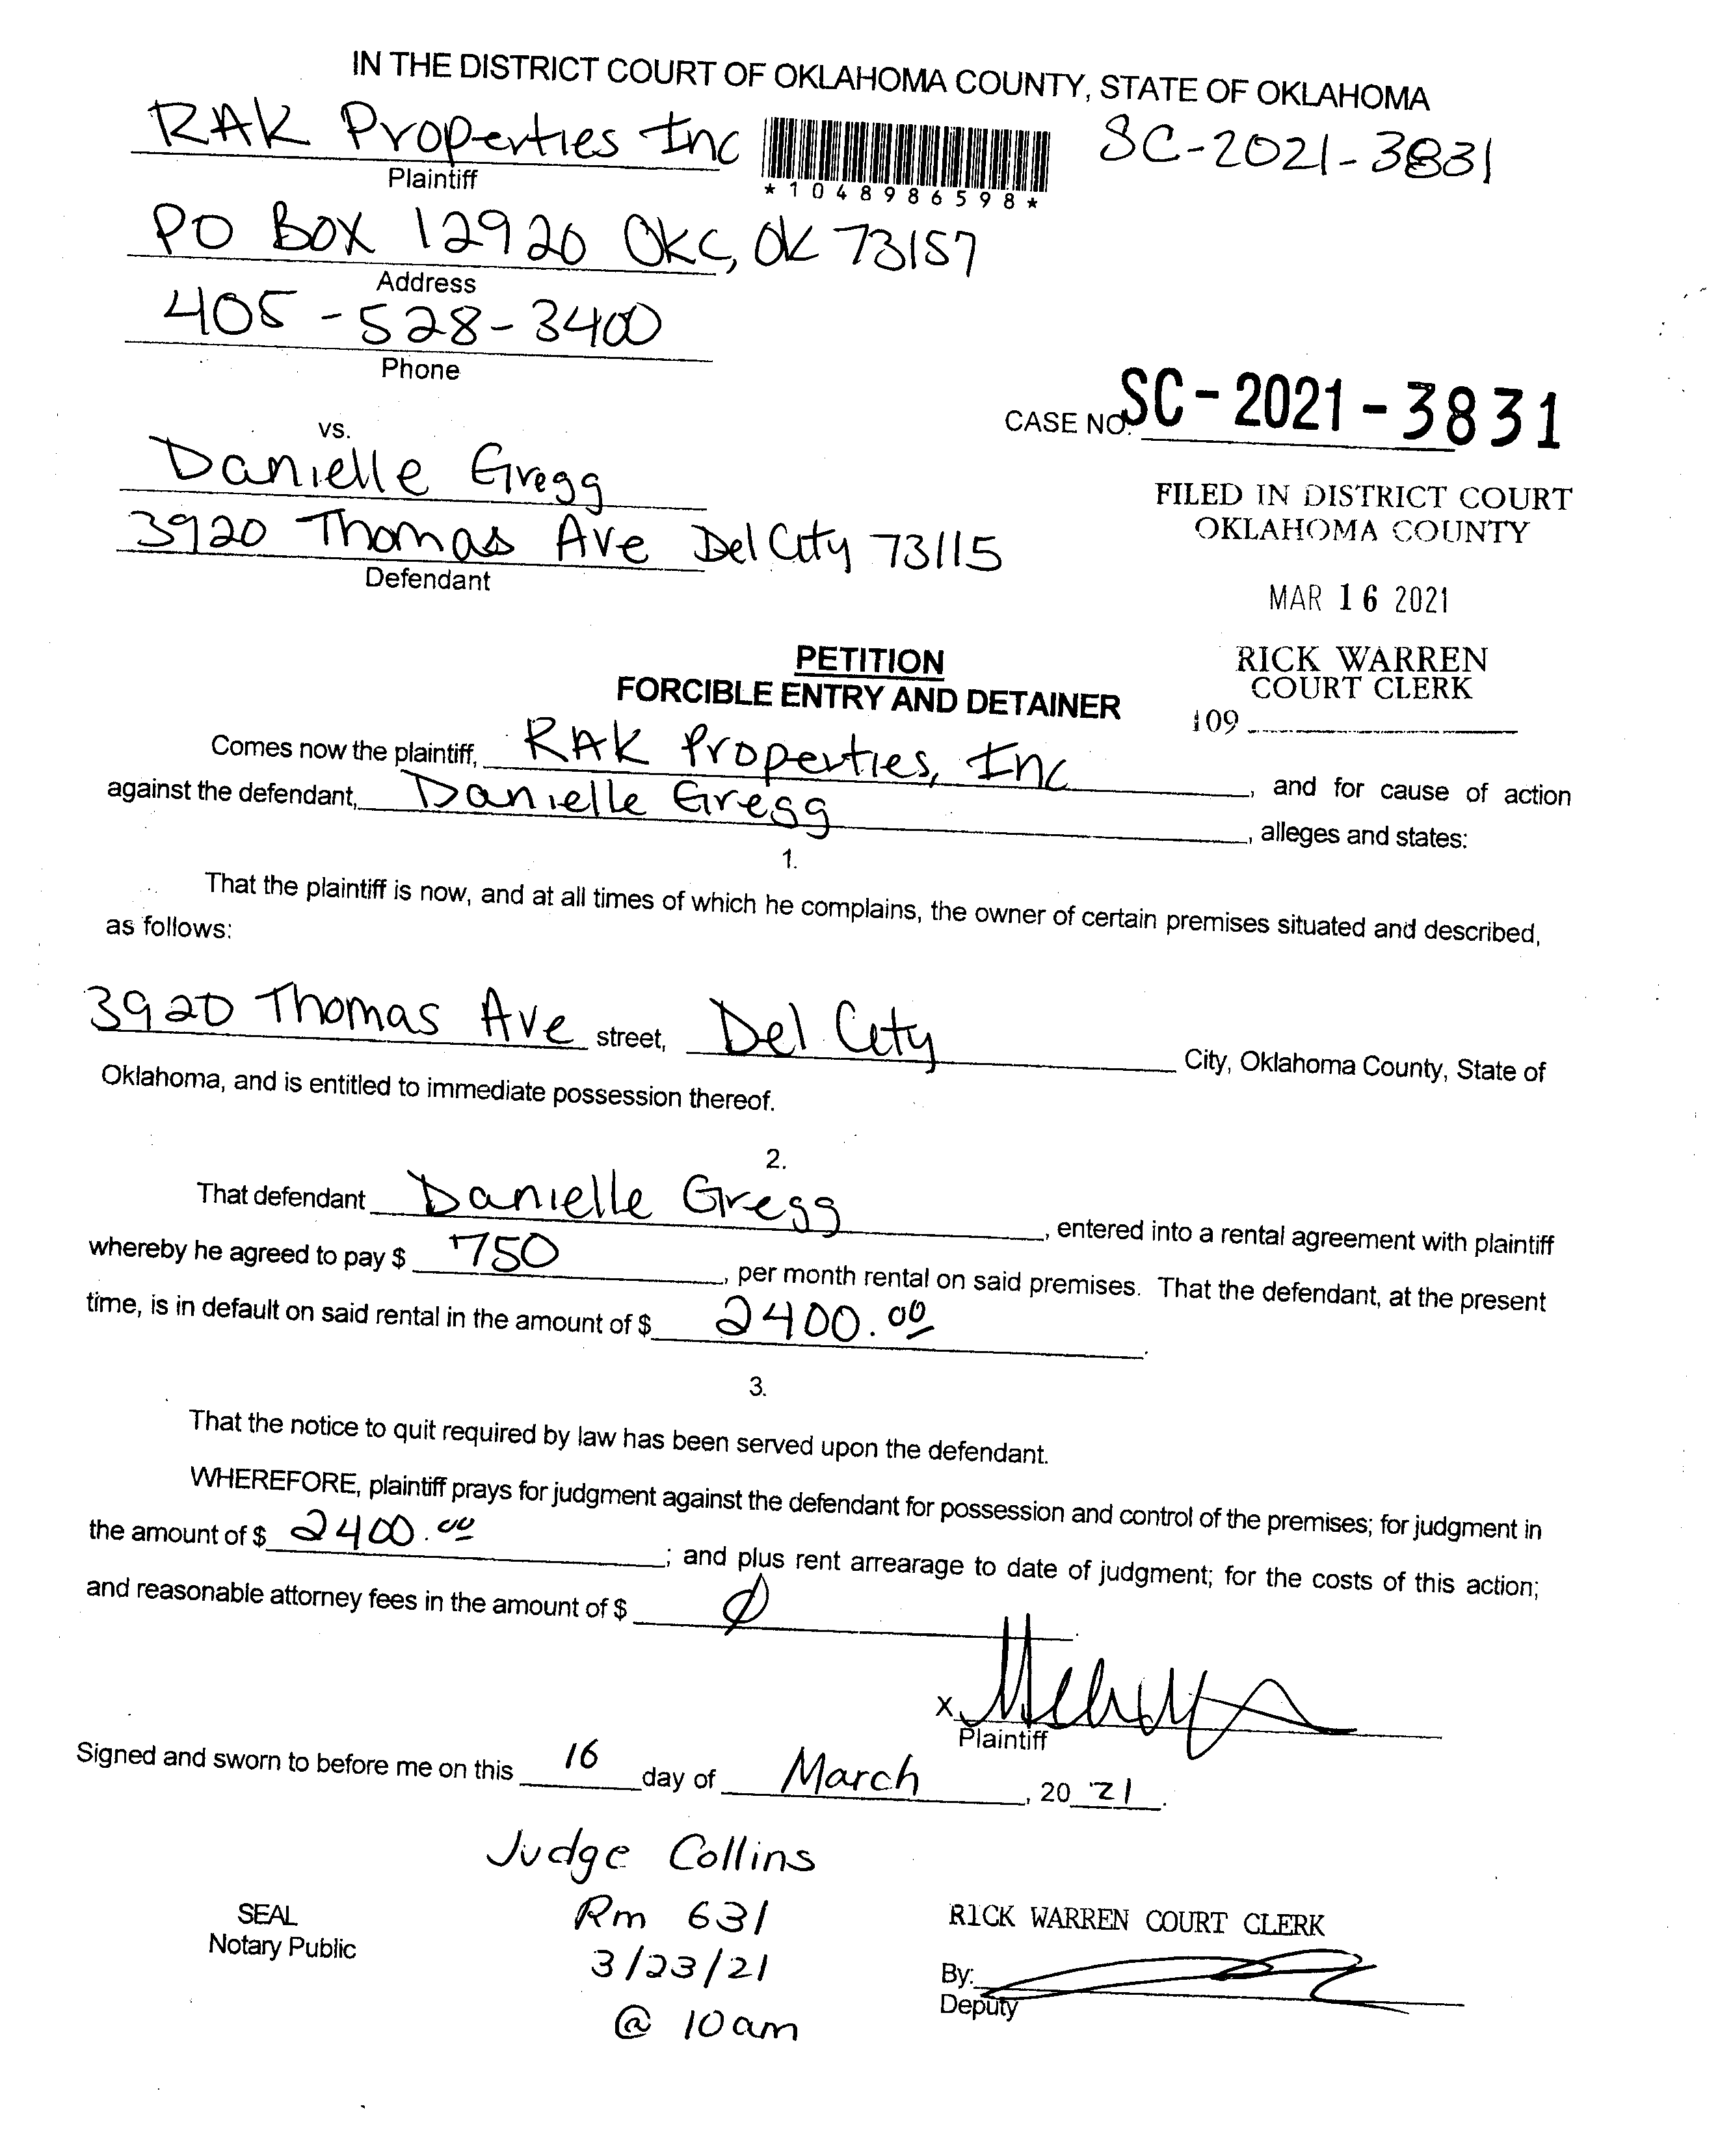 IN THE DISTRICT COURT OF OKLAHOMA COUNTY, STATE OF OKLAHOMA
RAK Properties Inc
SC-2021-3831
Plaintiff
*1048986598*
PO Box 12920 OKC, OK 73157
Address
405-528-3400
Phone
CASE NO. SC-2021-3831
vs.
Danielle Gregg
3920 Thomas Ave Del City 73115
Defendant
FILED IN DISTRICT COURT
OKLAHOMA COUNTY
MAR 16 2021
RICK WARREN
COURT CLERK
109
PETITION
FORCIBLE ENTRY AND DETAINER
Comes now the plaintiff, RAK Properties, Inc, and for cause of action
against the defendant, Danielle Gregg, alleges and states:
1.
That the plaintiff is now, and at all times of which he complains, the owner of certain premises situated and described,
as follows:
3920 Thomas Ave street, Del City City, Oklahoma County, State of
Oklahoma, and is entitled to immediate possession thereof.
2.
That defendant Danielle Gregg, entered into a rental agreement with plaintiff
whereby he agreed to pay $ 750, per month rental on said premises. That the defendant, at the present
time, is in default on said rental in the amount of $ 2400.00.
3.
That the notice to quit required by law has been served upon the defendant.
WHEREFORE, plaintiff prays for judgment against the defendant for possession and control of the premises; for judgment in
the amount of $ 2400.00; and plus rent arrearage to date of judgment; for the costs of this action;
and reasonable attorney fees in the amount of $ Ø.
X
Plaintiff
Signed and sworn to before me on this 16 day of March, 20 21.
Judge Collins
Rm 631
3/23/21
@ 10am
SEAL
Notary Public
RICK WARREN COURT CLERK
By:
Deputy